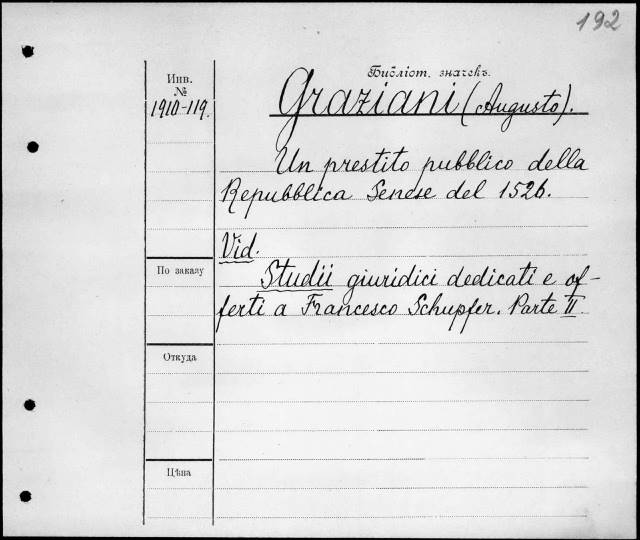 192
Библіот. значекъ.
Инв.
№
1910-119.
Graziani (Augusto).
Un prestito pubblico della
Repubblica Senese del 1526.
Vid.
Studii giuridici dedicati e of-
ferti a Francesco Schupfer. Parte II.
По заказу
Откуда
Цѣна